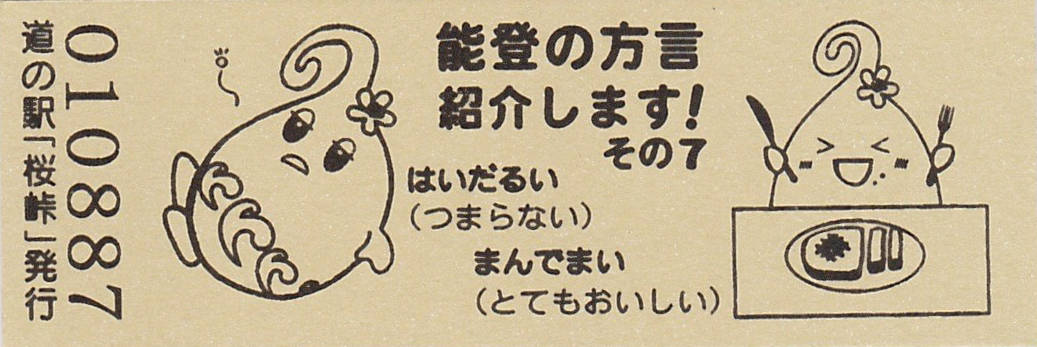 能登の方言
紹介します!
その7
はいだるい
(つまらない)
まんでまい
(とてもおいしい)
010887
道の駅「桜峠」発行